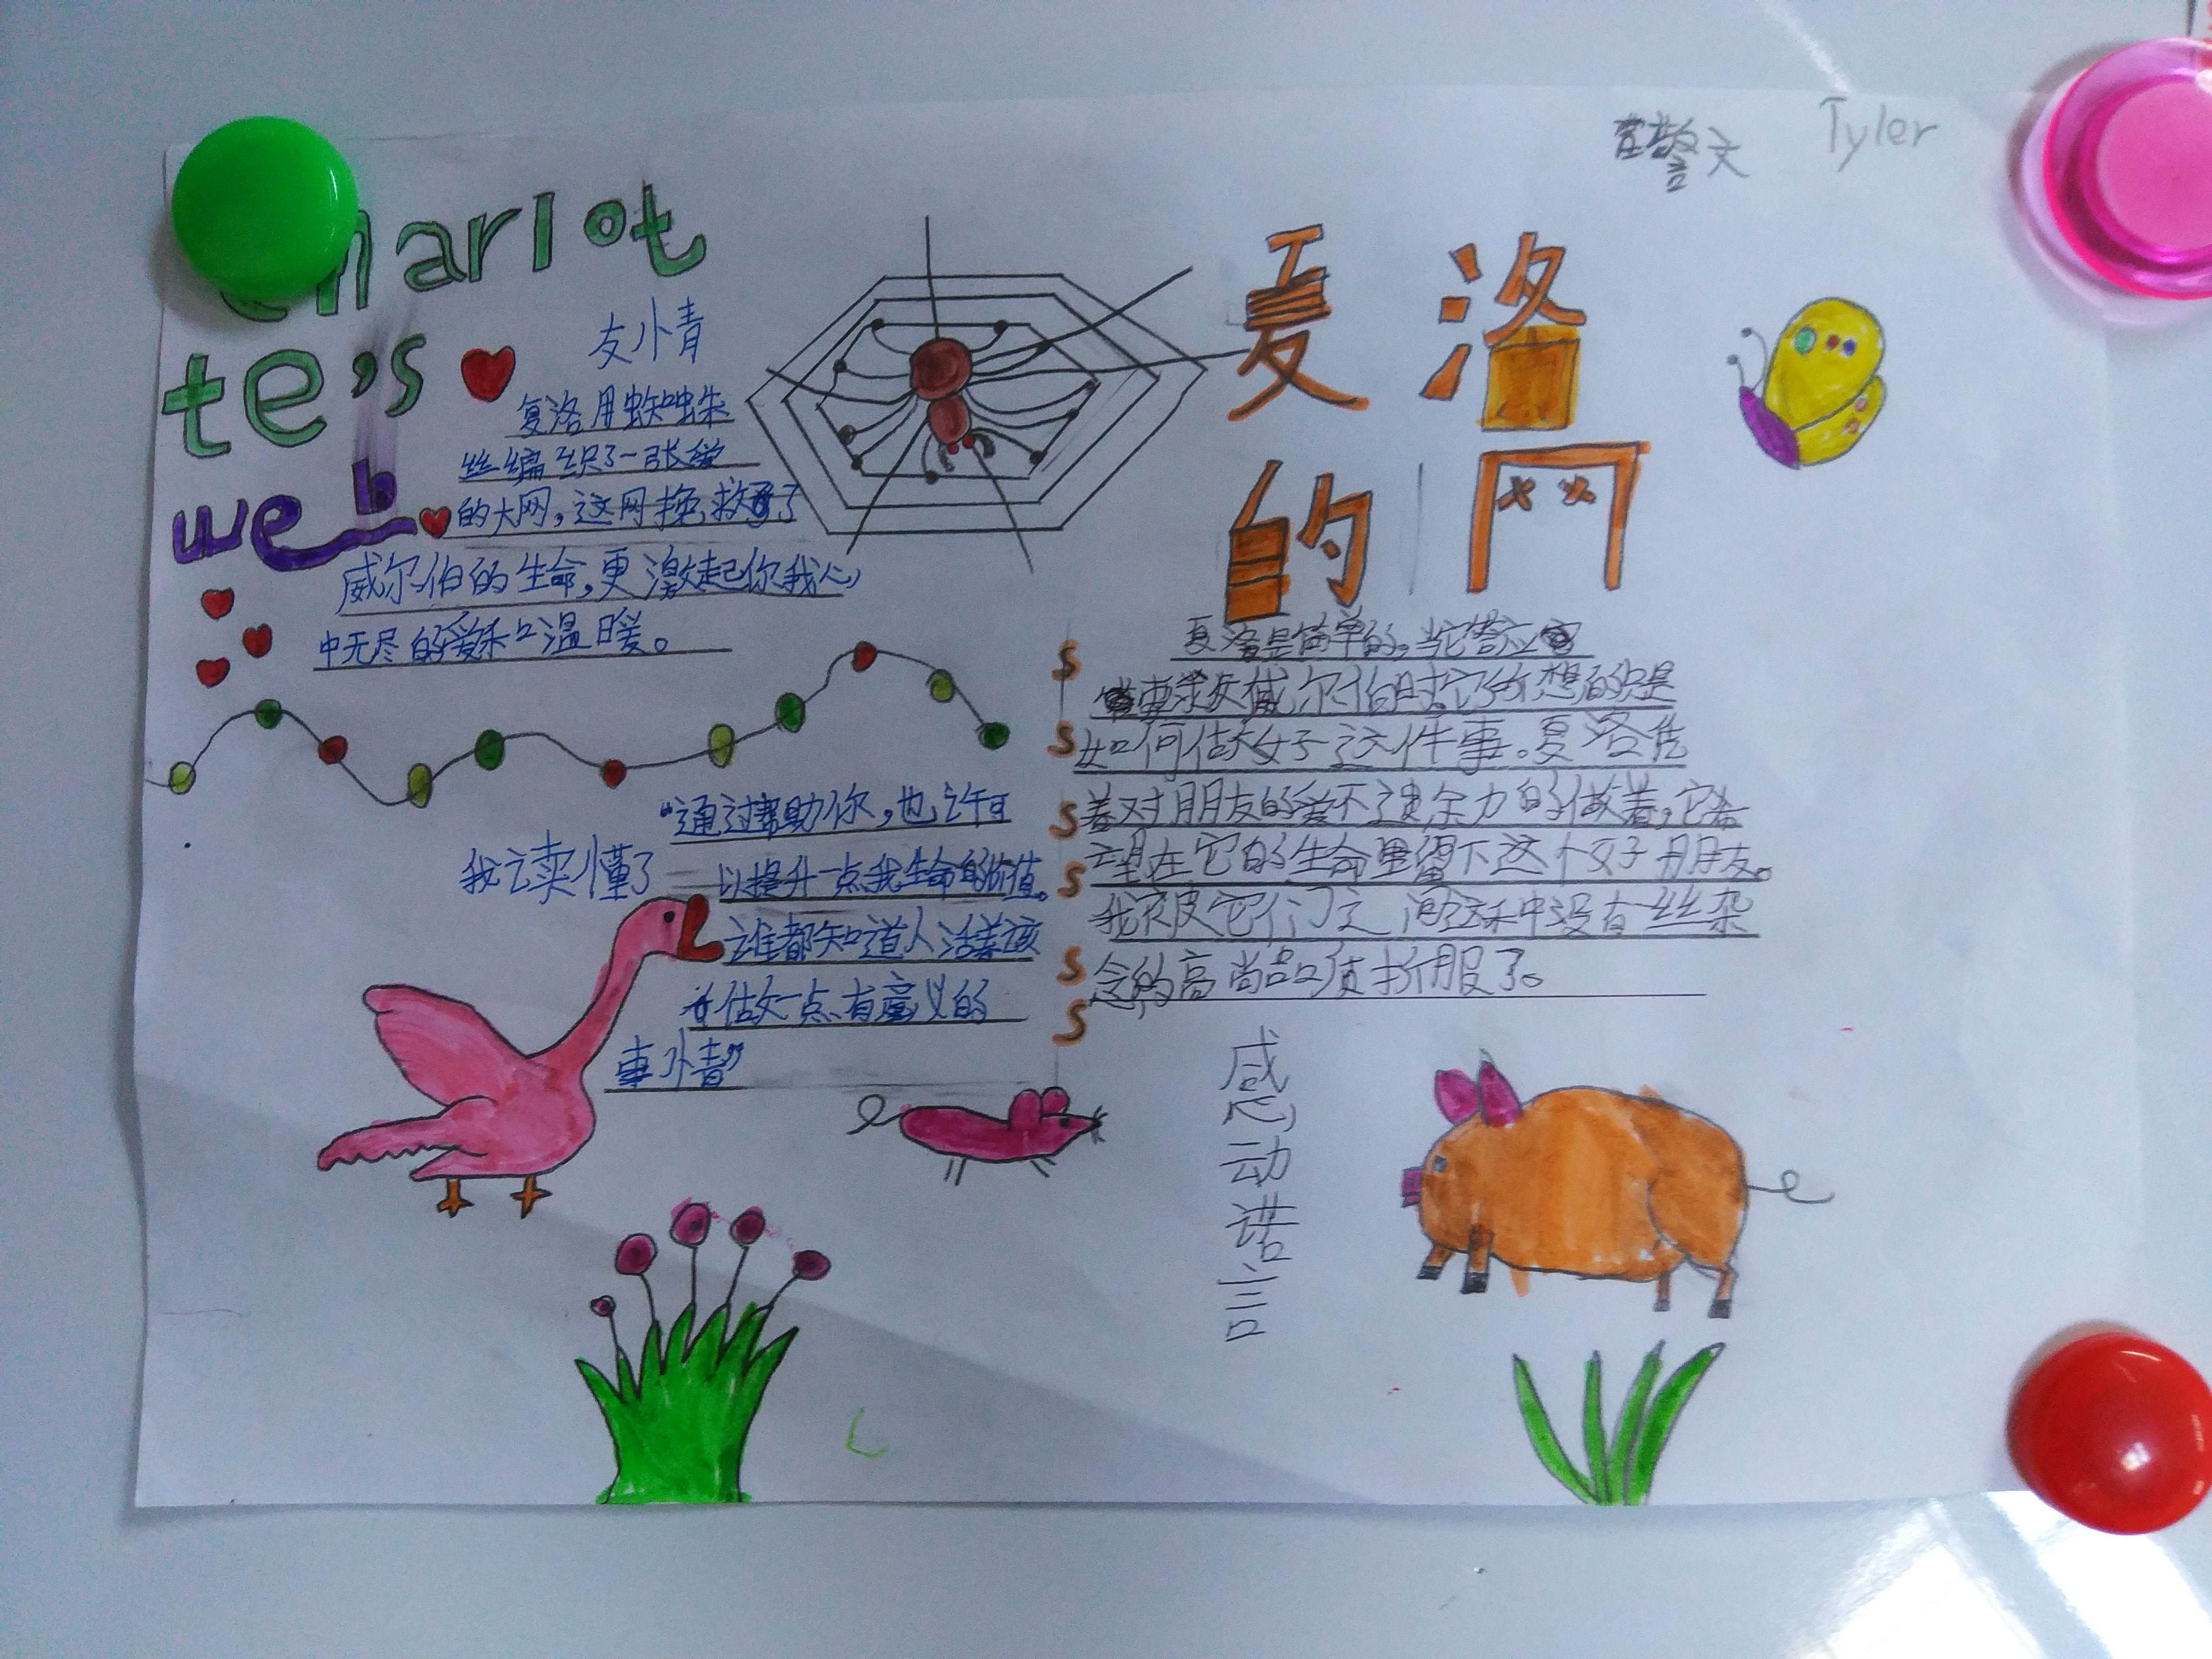 Tyler
Charlot
te's
web
友情
夏洛用蜘蛛
丝编织了一张爱
的大网，这网挽救了
威尔伯的生命，更激起你我心
中无尽的爱和温暖。
我读懂了
"通过帮助你，也许可
以提升一点我生命的价值。
谁都知道人活着该
做一点有意义的
事情"
夏洛
的网
夏洛是简单的。当它答应
要求救威尔伯时它所想的只是
如何做好这件事。夏洛凭
着对朋友的爱不遗余力的做着，它希
望在它的生命里留下这个好朋友。
我被它们之间这种没有一丝杂
念的高尚品质折服了。
感动诺言